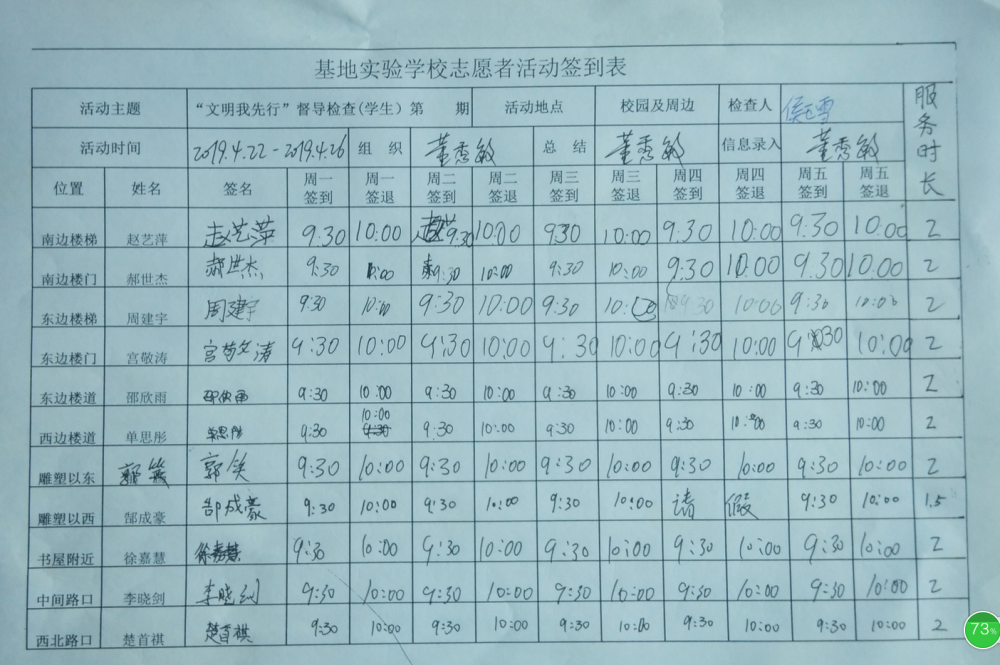 基地实验学校志愿者活动签到表
活动主题 “文明我先行”督导检查(学生) 第 期 活动地点 校园及周边 检查人 服务时长
活动时间 2019.4.22-2019.4.26 组 织 董秀敏 总 结 董秀敏 信息录入 董秀敏
位置 姓名 签名 周一签到 周一签退 周二签到 周二签退 周三签到 周三签退 周四签到 周四签退 周五签到 周五签退
南边楼梯 赵艺萍 赵艺萍 9:30 10:00 9:30 10:00 9:30 10:00 9:30 10:00 9:30 10:00 2
南边楼门 郝世杰 郝世杰 9:30 10:00 9:30 10:00 9:30 10:00 9:30 10:00 9:30 10:00 2
东边楼梯 周建宇 周建宇 9:30 10:00 9:30 10:00 9:30 10:00 9:30 10:00 9:30 10:00 2
东边楼门 宫敬涛 9:30 10:00 9:30 10:00 9:30 10:00 9:30 10:00 9:30 10:00 2
东边楼道 邵欣雨 邵欣雨 9:30 10:00 9:30 10:00 9:30 10:00 9:30 10:00 9:30 10:00 2
西边楼道 单思彤 单思彤 9:30 10:00 9:30 10:00 9:30 10:00 9:30 10:00 9:30 10:00 2
雕塑以东 郭笑 郭笑 9:30 10:00 9:30 10:00 9:30 10:00 9:30 10:00 9:30 10:00 2
雕塑以西 郜成豪 郜成豪 9:30 10:00 9:30 10:00 9:30 10:00 请 假 9:30 10:00 1.5
书屋附近 徐嘉慧 徐嘉慧 9:30 10:00 9:30 10:00 9:30 10:00 9:30 10:00 9:30 10:00 2
中间路口 李晓剑 李晓剑 9:30 10:00 9:30 10:00 9:30 10:00 9:30 10:00 9:30 10:00 2
西北路口 楚首祺 楚首祺 9:30 10:00 9:30 10:00 9:30 10:00 9:30 10:00 9:30 10:00 2
73%